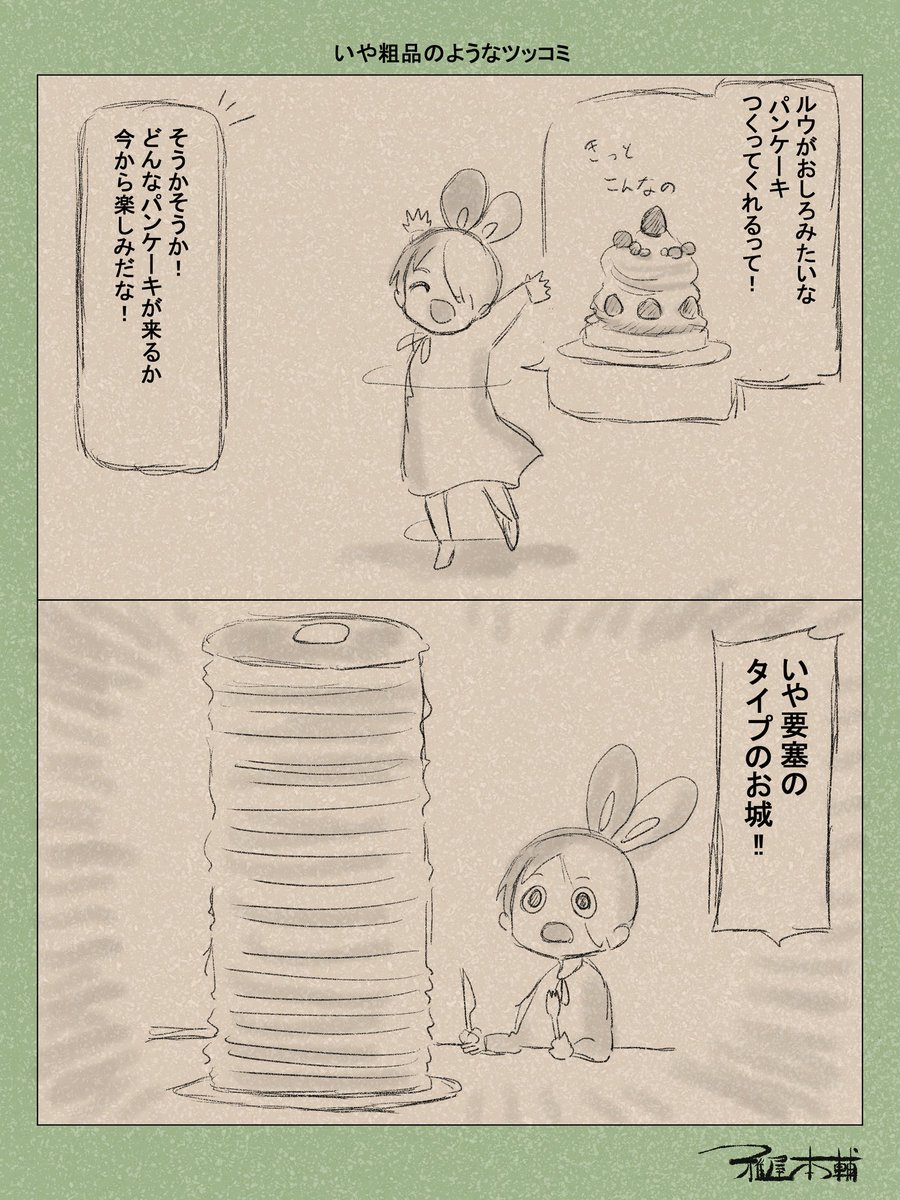 いや粗品のようなツッコミ
ルウがおしろみたいな
パンケーキ
つくってくれるって！
きっと
こんなの
そうかそうか！
どんなパンケーキが来るか
今から楽しみだな！
いや要塞の
タイプのお城‼